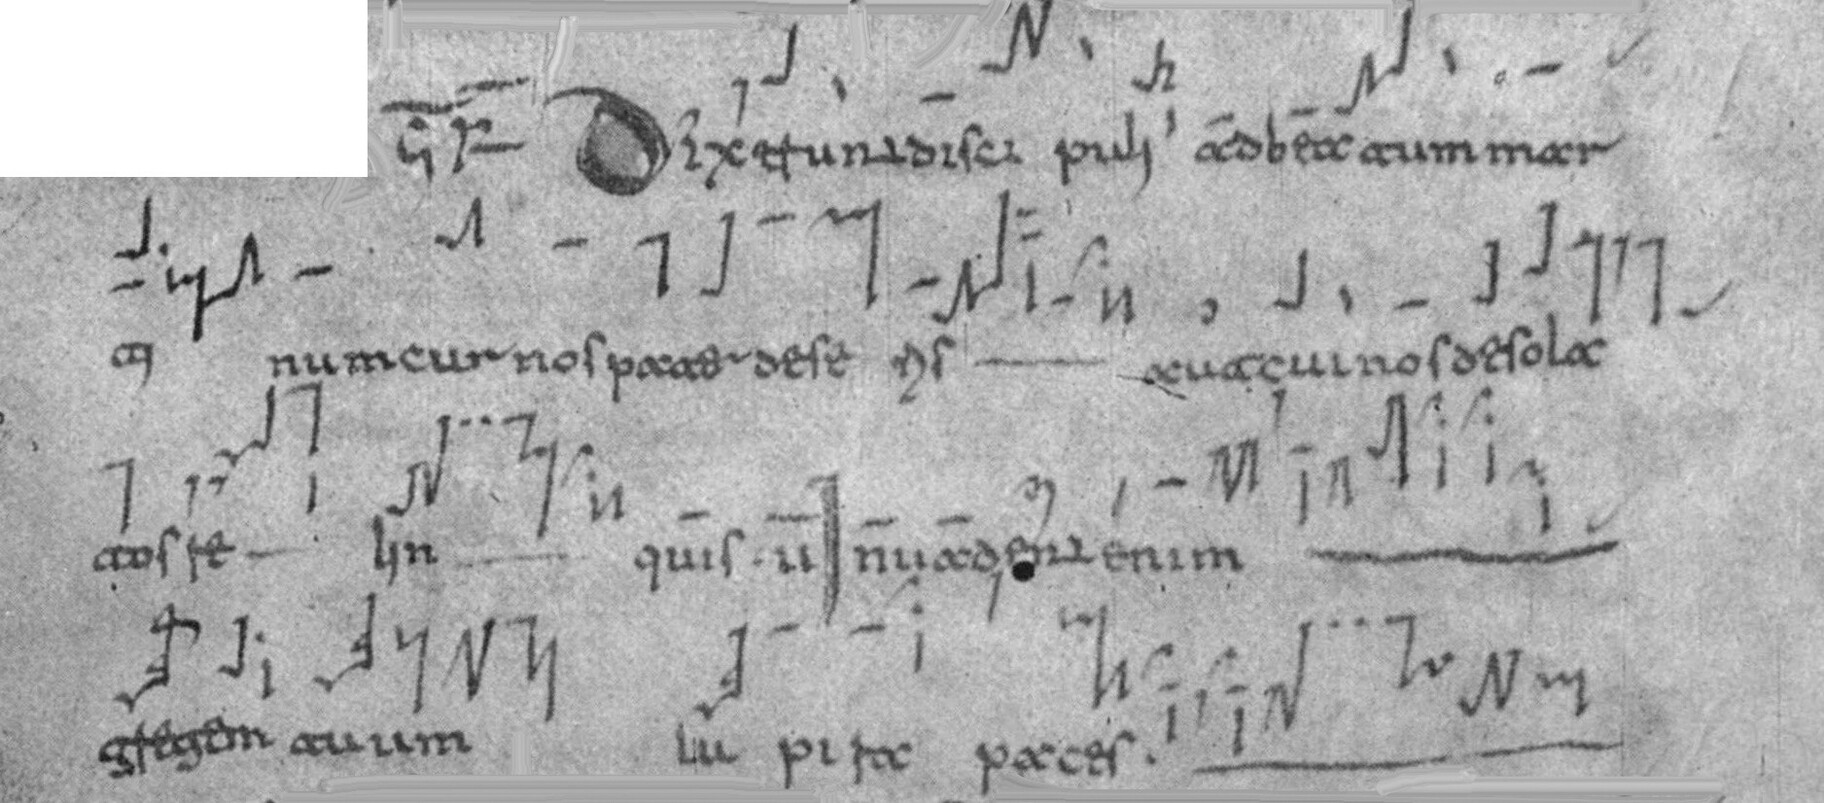 Dixerunt disci puli ad beatum mar
ti num cur nos pater dese ris aut cui nos desola
tos re lin quis. inuadent enim
gregem tuum lu pi ra paces.